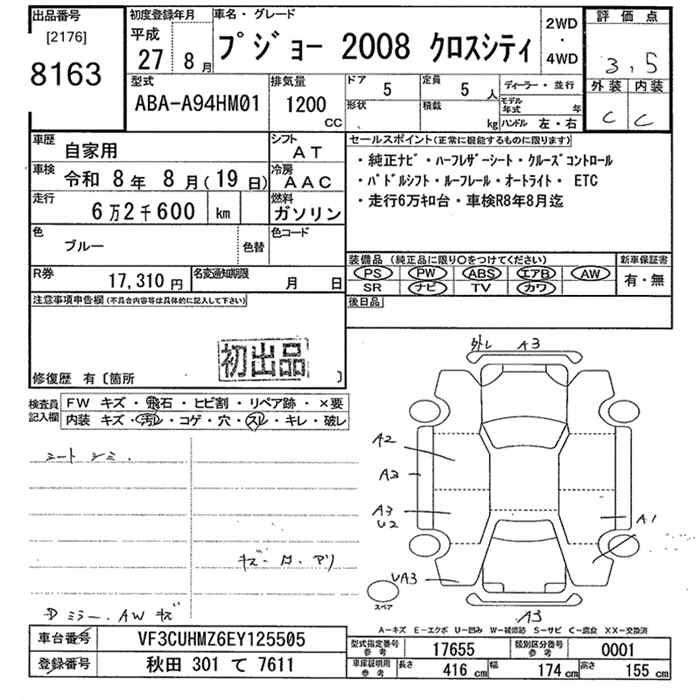 出品番号 初度登録年月 車名・グレード 2WD ・ 4WD 評価点
[2176] 平成 プジョー 2008 クロスシティ 3,5
8163 27 8月
外装 内装
C C
型式 排気量 ドア 5 定員 5人 ディーラー・並行
ABA-A94HM01 1200 CC 形状 積載 kg モデル年式 年
ハンドル 左・右
車歴 自家用 シフト AT セールスポイント(正常に機能するものに限ります)
車検 令和 8年 8月(19日) 冷房 AAC ・純正ナビ・ハーフレザーシート・クルーズコントロール
走行 6万2千600 km 燃料 ガソリン ・パドルシフト・ルーフレール・オートライト・ ETC
・走行6万キロ台・車検R8年8月迄
色 ブルー 色替 色コード
装備品 (純正品に限り○をつけてください) 新車保証書
R券 17,310円 名変通知期限 月 日 PS PW ABS エアB AW 有・無
SR ナビ TV カワ
注意事項申告欄(不具合内容等は具体的に記入して下さい) 後日品
初出品
修復歴 有〔箇所 〕
検査員記入欄 FW キズ・飛石・ヒビ割・リペア跡・×要
内装 キズ・汚レ・コゲ・穴・スレ・キレ・破レ
外し A3
シートシミ
A2
A2
A3
U2
A1
UA3
スペア
A3
ミラー、AW キズ
A-キズ E-エクボ U-凹み W-補修跡 S-サビ C-腐食 XX-交換済
車台番号 VF3CUHMZ6EY125505 型式指定番号 参考 17655 類別区分番号 参考 0001
登録番号 秋田 301 て 7611 車庫証明用 参考 長さ 416 cm 幅 174 cm 高さ 155 cm